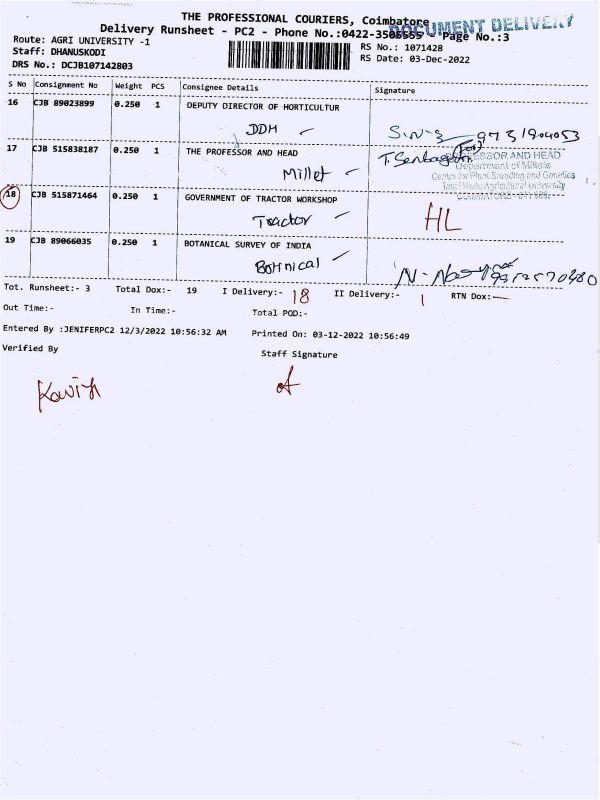 THE PROFESSIONAL COURIERS, Coimbatore
DOCUMENT DELIVERY
Delivery Runsheet - PC2 - Phone No.:0422-3505555 Page No.:3
Route: AGRI UNIVERSITY -1
RS No.: 1071428
Staff: DHANUSKODI
RS Date: 03-Dec-2022
DRS No.: DCJB107142803
S No Consignment No Weight PCS Consignee Details Signature
16 CJB 89023899 0.250 1 DEPUTY DIRECTOR OF HORTICULTUR
DDH
17 CJB 515838187 0.250 1 THE PROFESSOR AND HEAD
PROFESSOR AND HEAD
Department of Millets
Millet
Centre for Plant Breeding and Genetics
Tamil Nadu Agricultural University
18 CJB 515871464 0.250 1 GOVERNMENT OF TRACTOR WORKSHOP
Tractor
HL
19 CJB 89066035 0.250 1 BOTANICAL SURVEY OF INDIA
Botnical
Tot. Runsheet:- 3 Total Dox:- 19 I Delivery:- 18 II Delivery:- 1 RTN Dox:-
Out Time:- In Time:- Total POD:-
Entered By :JENIFERPC2 12/3/2022 10:56:32 AM Printed On: 03-12-2022 10:56:49
Verified By Staff Signature